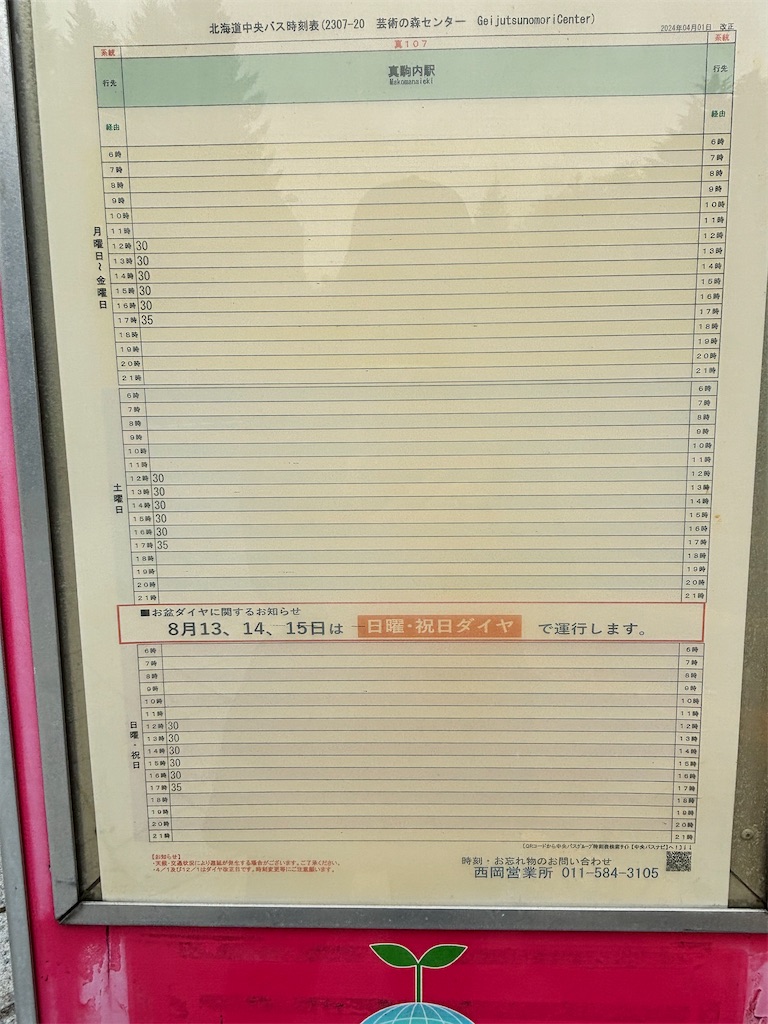 北海道中央バス時刻表(2307-20　芸術の森センター　GeijutsunomoriCenter)
2024年04月01日　改正
系統 真107 系統
行先 真駒内駅 行先
Makomanaieki
経由 経由
月曜日～金曜日
6時 6時
7時 7時
8時 8時
9時 9時
10時 10時
11時 11時
12時 30 12時
13時 30 13時
14時 30 14時
15時 30 15時
16時 30 16時
17時 35 17時
18時 18時
19時 19時
20時 20時
21時 21時
土曜日
6時 6時
7時 7時
8時 8時
9時 9時
10時 10時
11時 11時
12時 30 12時
13時 30 13時
14時 30 14時
15時 30 15時
16時 30 16時
17時 35 17時
18時 18時
19時 19時
20時 20時
21時 21時
■お盆ダイヤに関するお知らせ
8月13、14、15日は 日曜・祝日ダイヤ で運行します。
日曜・祝日
6時 6時
7時 7時
8時 8時
9時 9時
10時 10時
11時 11時
12時 30 12時
13時 30 13時
14時 30 14時
15時 30 15時
16時 30 16時
17時 35 17時
18時 18時
19時 19時
20時 20時
21時 21時
【QRコードから中央バスグループ時刻表検索サイト【中央バスナビ】へ!】↓↓↓
【お知らせ】
・天候・交通状況により遅延が発生する場合がございます。ご了承ください。
・4/1及び12/1はダイヤ改正日です。時刻変更等にご注意願います。
時刻・お忘れ物のお問い合わせ
西岡営業所 011-584-3105